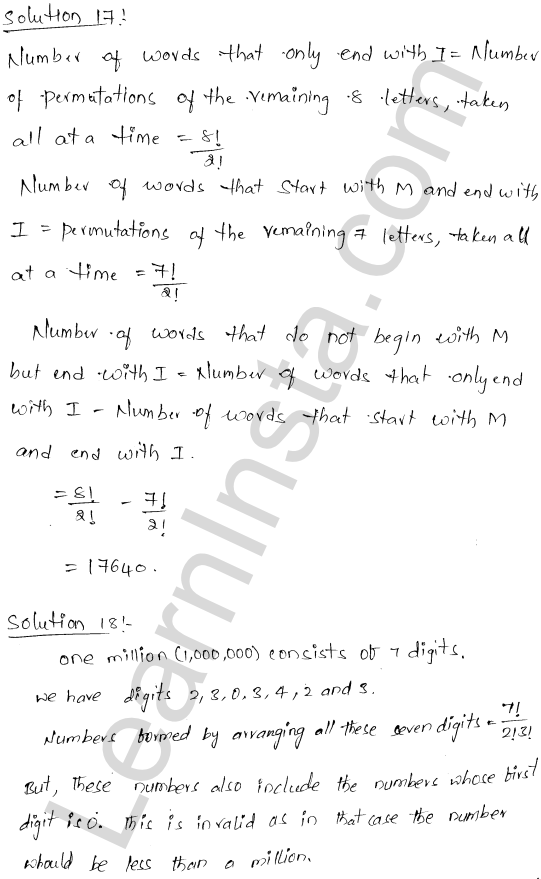 Solution 17:
Number of words that only end with I = Number
of permutations of the remaining 8 letters, taken
all at a time = 8!/2!
Number of words that start with M and end with
I = permutations of the remaining 7 letters, taken all
at a time = 7!/2!
Number of words that do not begin with M
but end with I = Number of words that only end
with I - Number of words that start with M
and end with I.
= 8!/2! - 7!/2!
= 17640.
Solution 18:-
one million (1,000,000) consists of 7 digits.
we have digits 2, 3, 0, 3, 4, 2 and 3.
Numbers formed by arranging all these seven digits = 7!/2!3!
But, these numbers also include the numbers whose first
digit is 0. This is invalid as in that case the number
would be less than a million.
LearnInsta.com